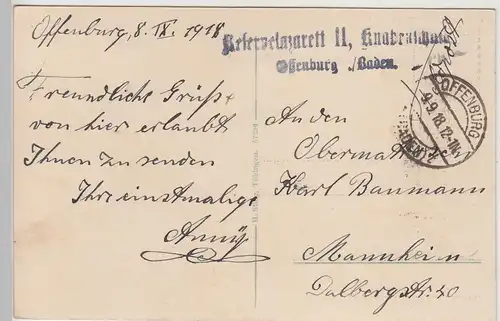 Offenburg, 8. IX. 1918
Reservelazarett II, Knabenschule
Offenburg i. Baden.
Freundliche Grüsse
von hier erlaubt
Ihnen zu senden
Ihre einstmalige
Anny
An den
Obermatr.
Karl Baumann
Mannheim
Dalbergstr. 40
OFFENBURG
9.9.18.12-1N.
(BADEN)